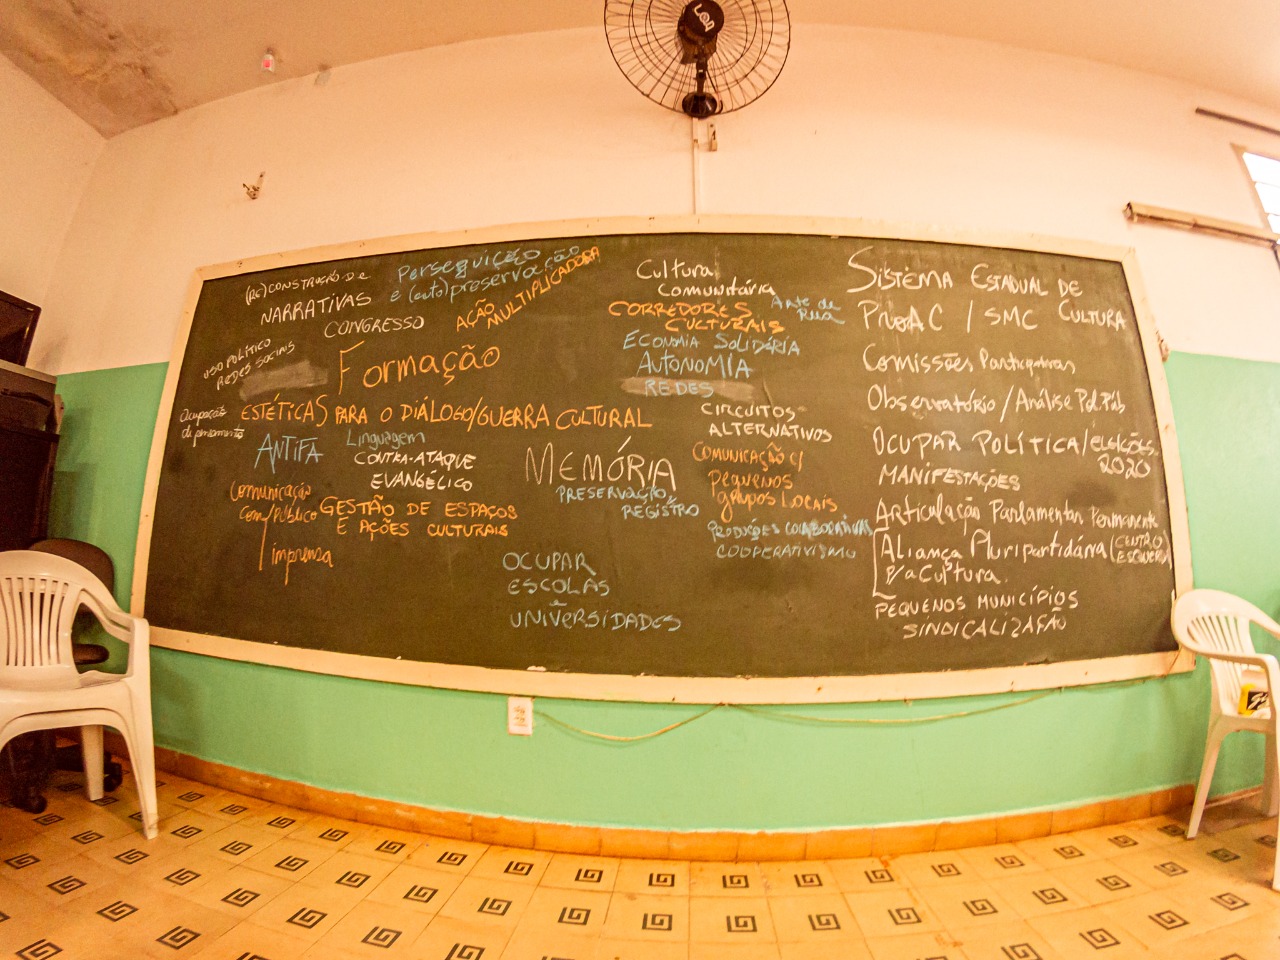 (RE)CONSTRUÇÃO DE
NARRATIVAS
Perseguição
e (auto)preservação
CONGRESSO
AÇÃO
MULTIPLICADORA
USO POLÍTICO
REDES SOCIAIS
Formação
Ocupação
de pensamento
ESTÉTICAS PARA O DIÁLOGO/GUERRA CULTURAL
ANTIFA
Linguagem
CONTRA-ATAQUE
EVANGÉLICO
Comunicação
Com/Público
imprensa
GESTÃO DE ESPAÇOS
E AÇÕES CULTURAIS
MEMÓRIA
PRESERVAÇÃO,
REGISTRO
OCUPAR
ESCOLAS
UNIVERSIDADES
Cultura
Comunitária
CORREDORES
CULTURAIS
Arte de
Rua
ECONOMIA SOLIDÁRIA
AUTONOMIA
REDES
CIRCUITOS
ALTERNATIVOS
COMUNICAÇÃO c/
pequenos
grupos LOCAIS
PRODUÇÕES COLABORATIVAS
COOPERATIVISMO
SISTEMA ESTADUAL DE
CULTURA
ProAC / SMC
Comissões Participativas
Observatório/Análise Pol. Púb
OCUPAR POLÍTICA/eleições
2020
MANIFESTAÇÕES
Articulação Parlamentar Permanente
Aliança Pluripartidária (CENTRO
ESQUERDA)
p/ a Cultura.
PEQUENOS MUNICÍPIOS
SINDICALIZAÇÃO